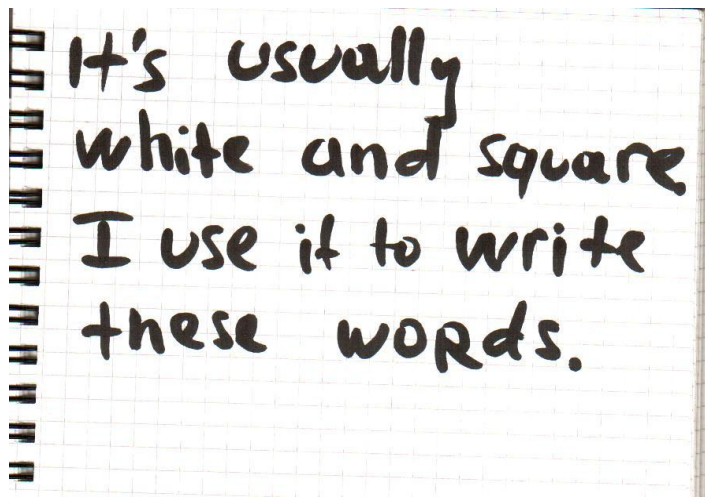 It's usually
white and square
I use it to write
these words.